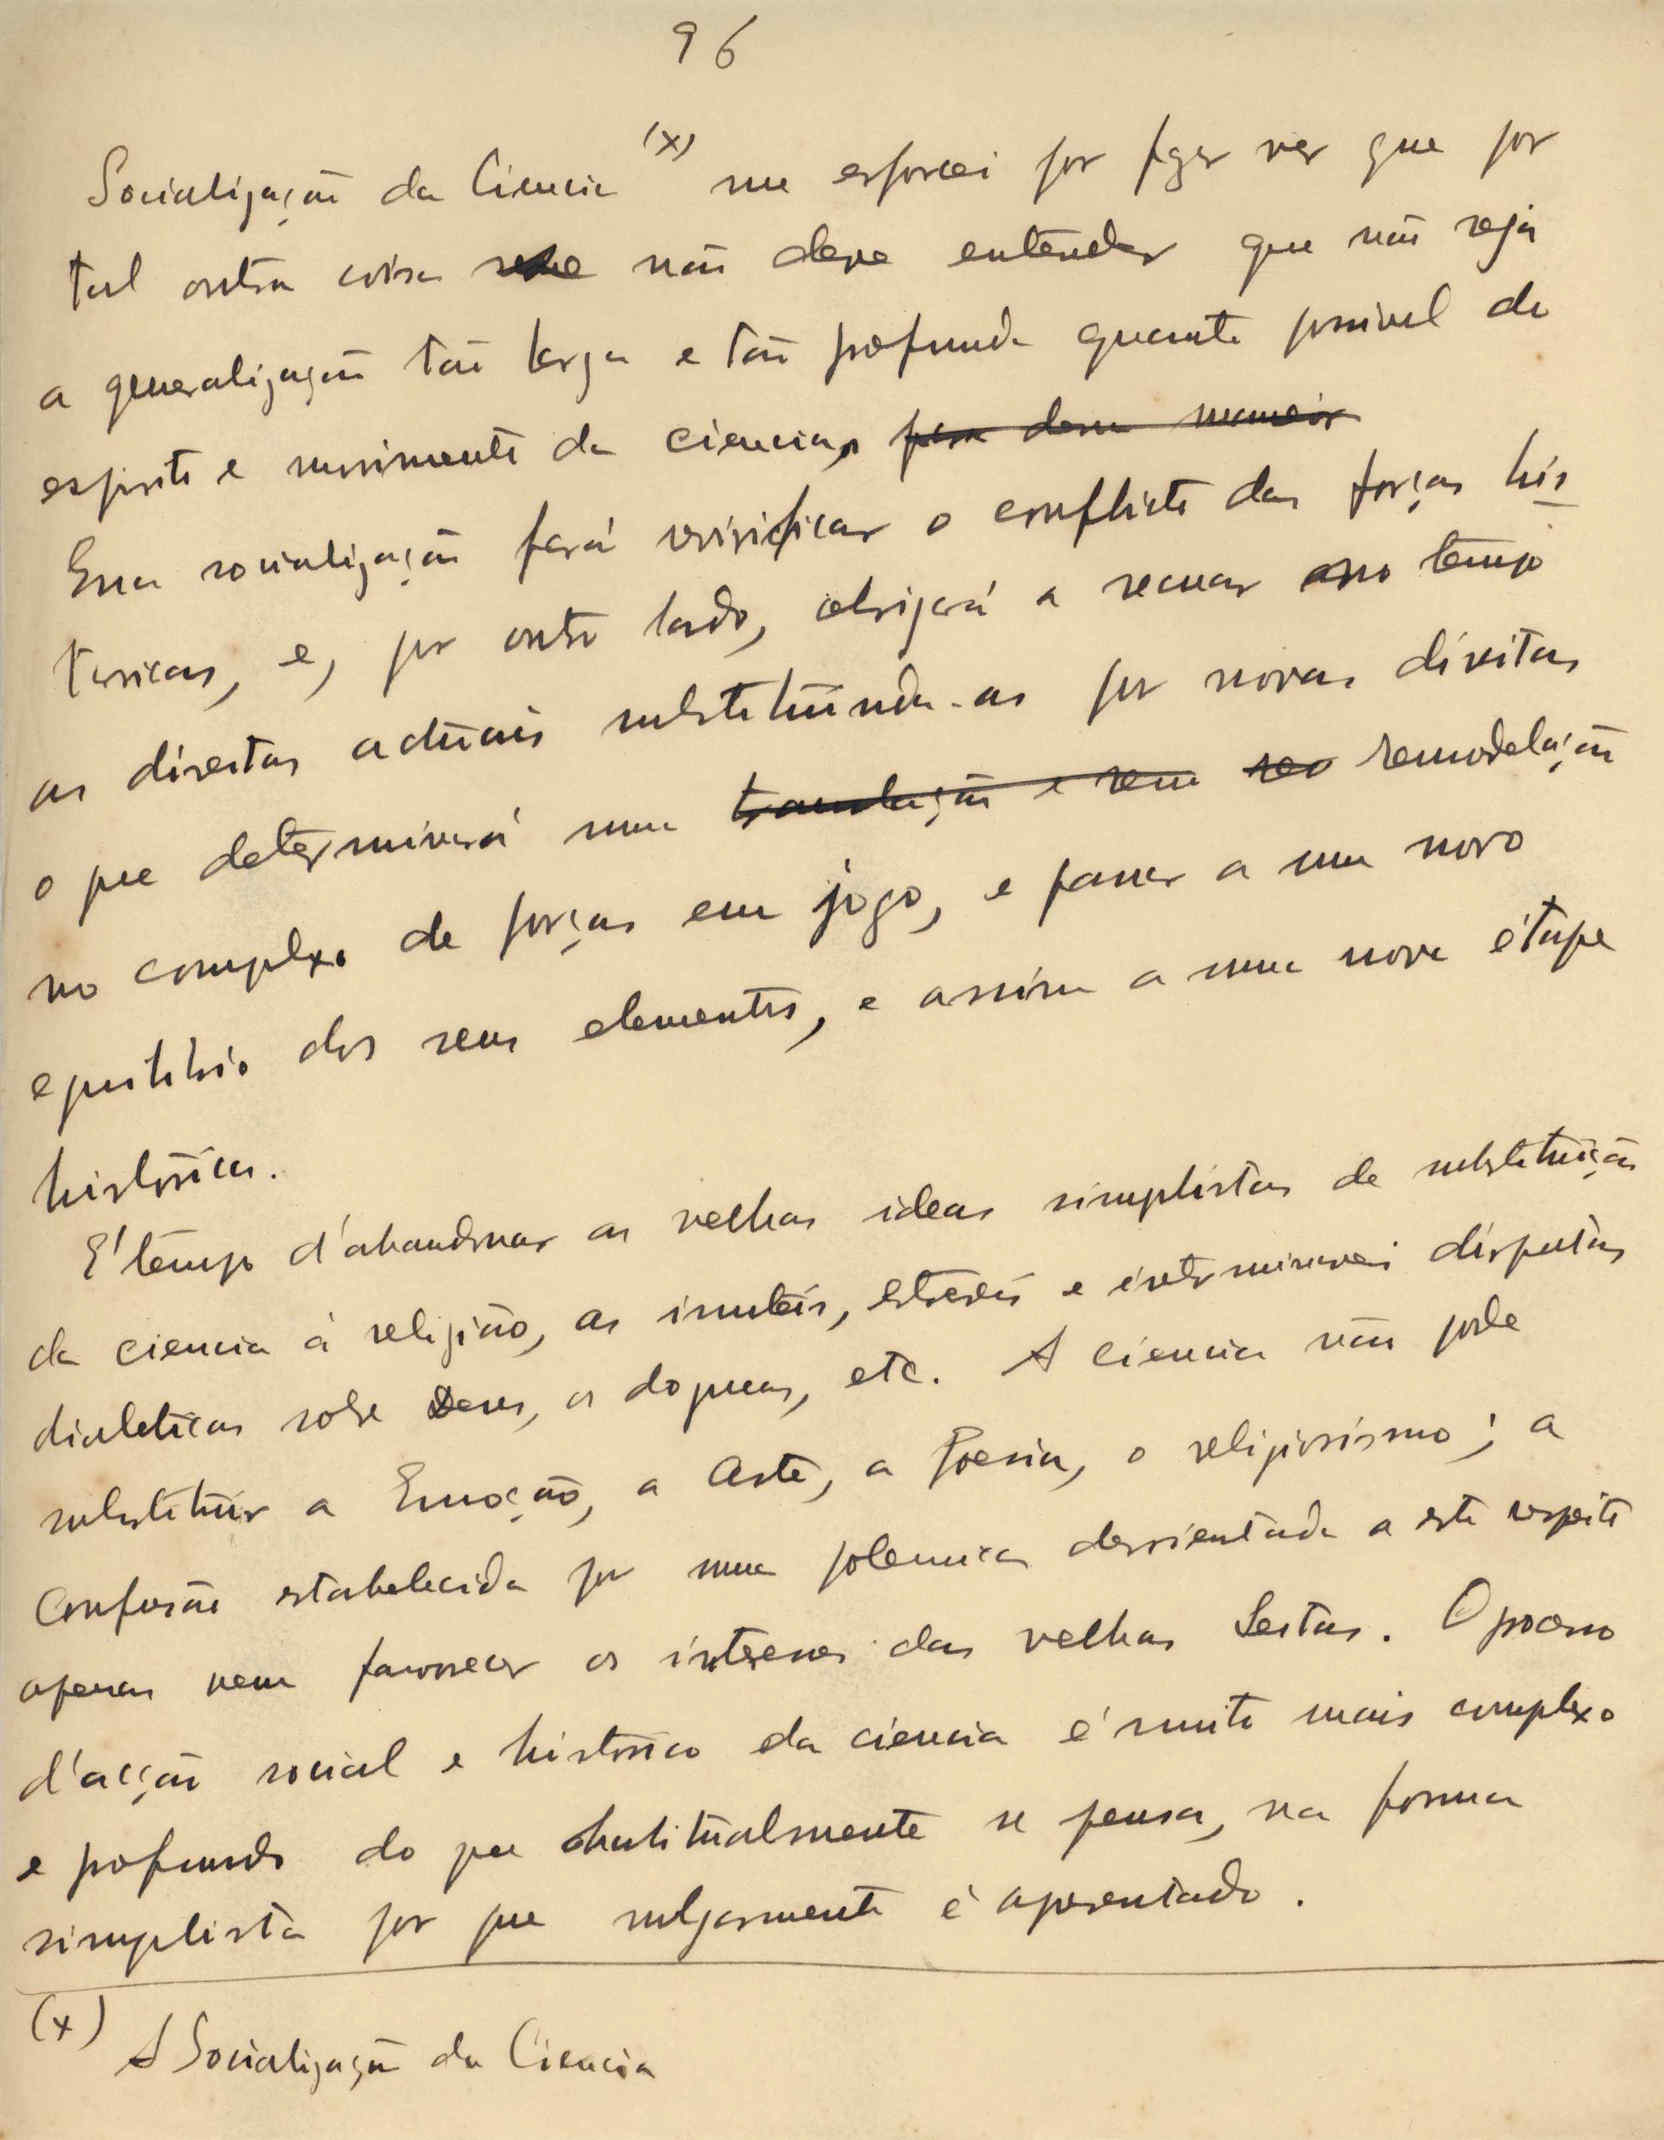 96
Socialização da Ciencia (x) me esforcei por fazer ver que por
tal outra coisa não deve entender que não seja
a generalização tão larga e tão profunda quanto possivel do
espirito e movimento da ciencia,
Essa socialização fará vivificar o conflicto das forças his
toricas, e, por outro lado, obrigará a recuar no tempo
as direitas actuais substituindo-as por novas direitas
o que determinará uma remodelação
no complexo de forças em jogo, e passar a um novo
equilibrio dos seus elementos, e assim a uma nova étape
historica.
E' tempo d'abandonar as velhas ideas simplistas de substituição
da ciencia á religião, as inuteis, estereis e interminaveis disputas
dialeticas sobre Deus, os dogmas, etc. A ciencia não pode
substituir a Emoção, a Arte, a Poesia, o religiosismo; a
Confusão estabelecida por uma polemica desorientada a este respeito
apenas vem favorecer os interesses das velhas Seitas. O processo
d'acção social e historico da ciencia é muito mais complexo
e profundo do que habitualmente se pensa, na forma
simplista por que vulgarmente é apresentado.
(x) A Socialização da Ciencia